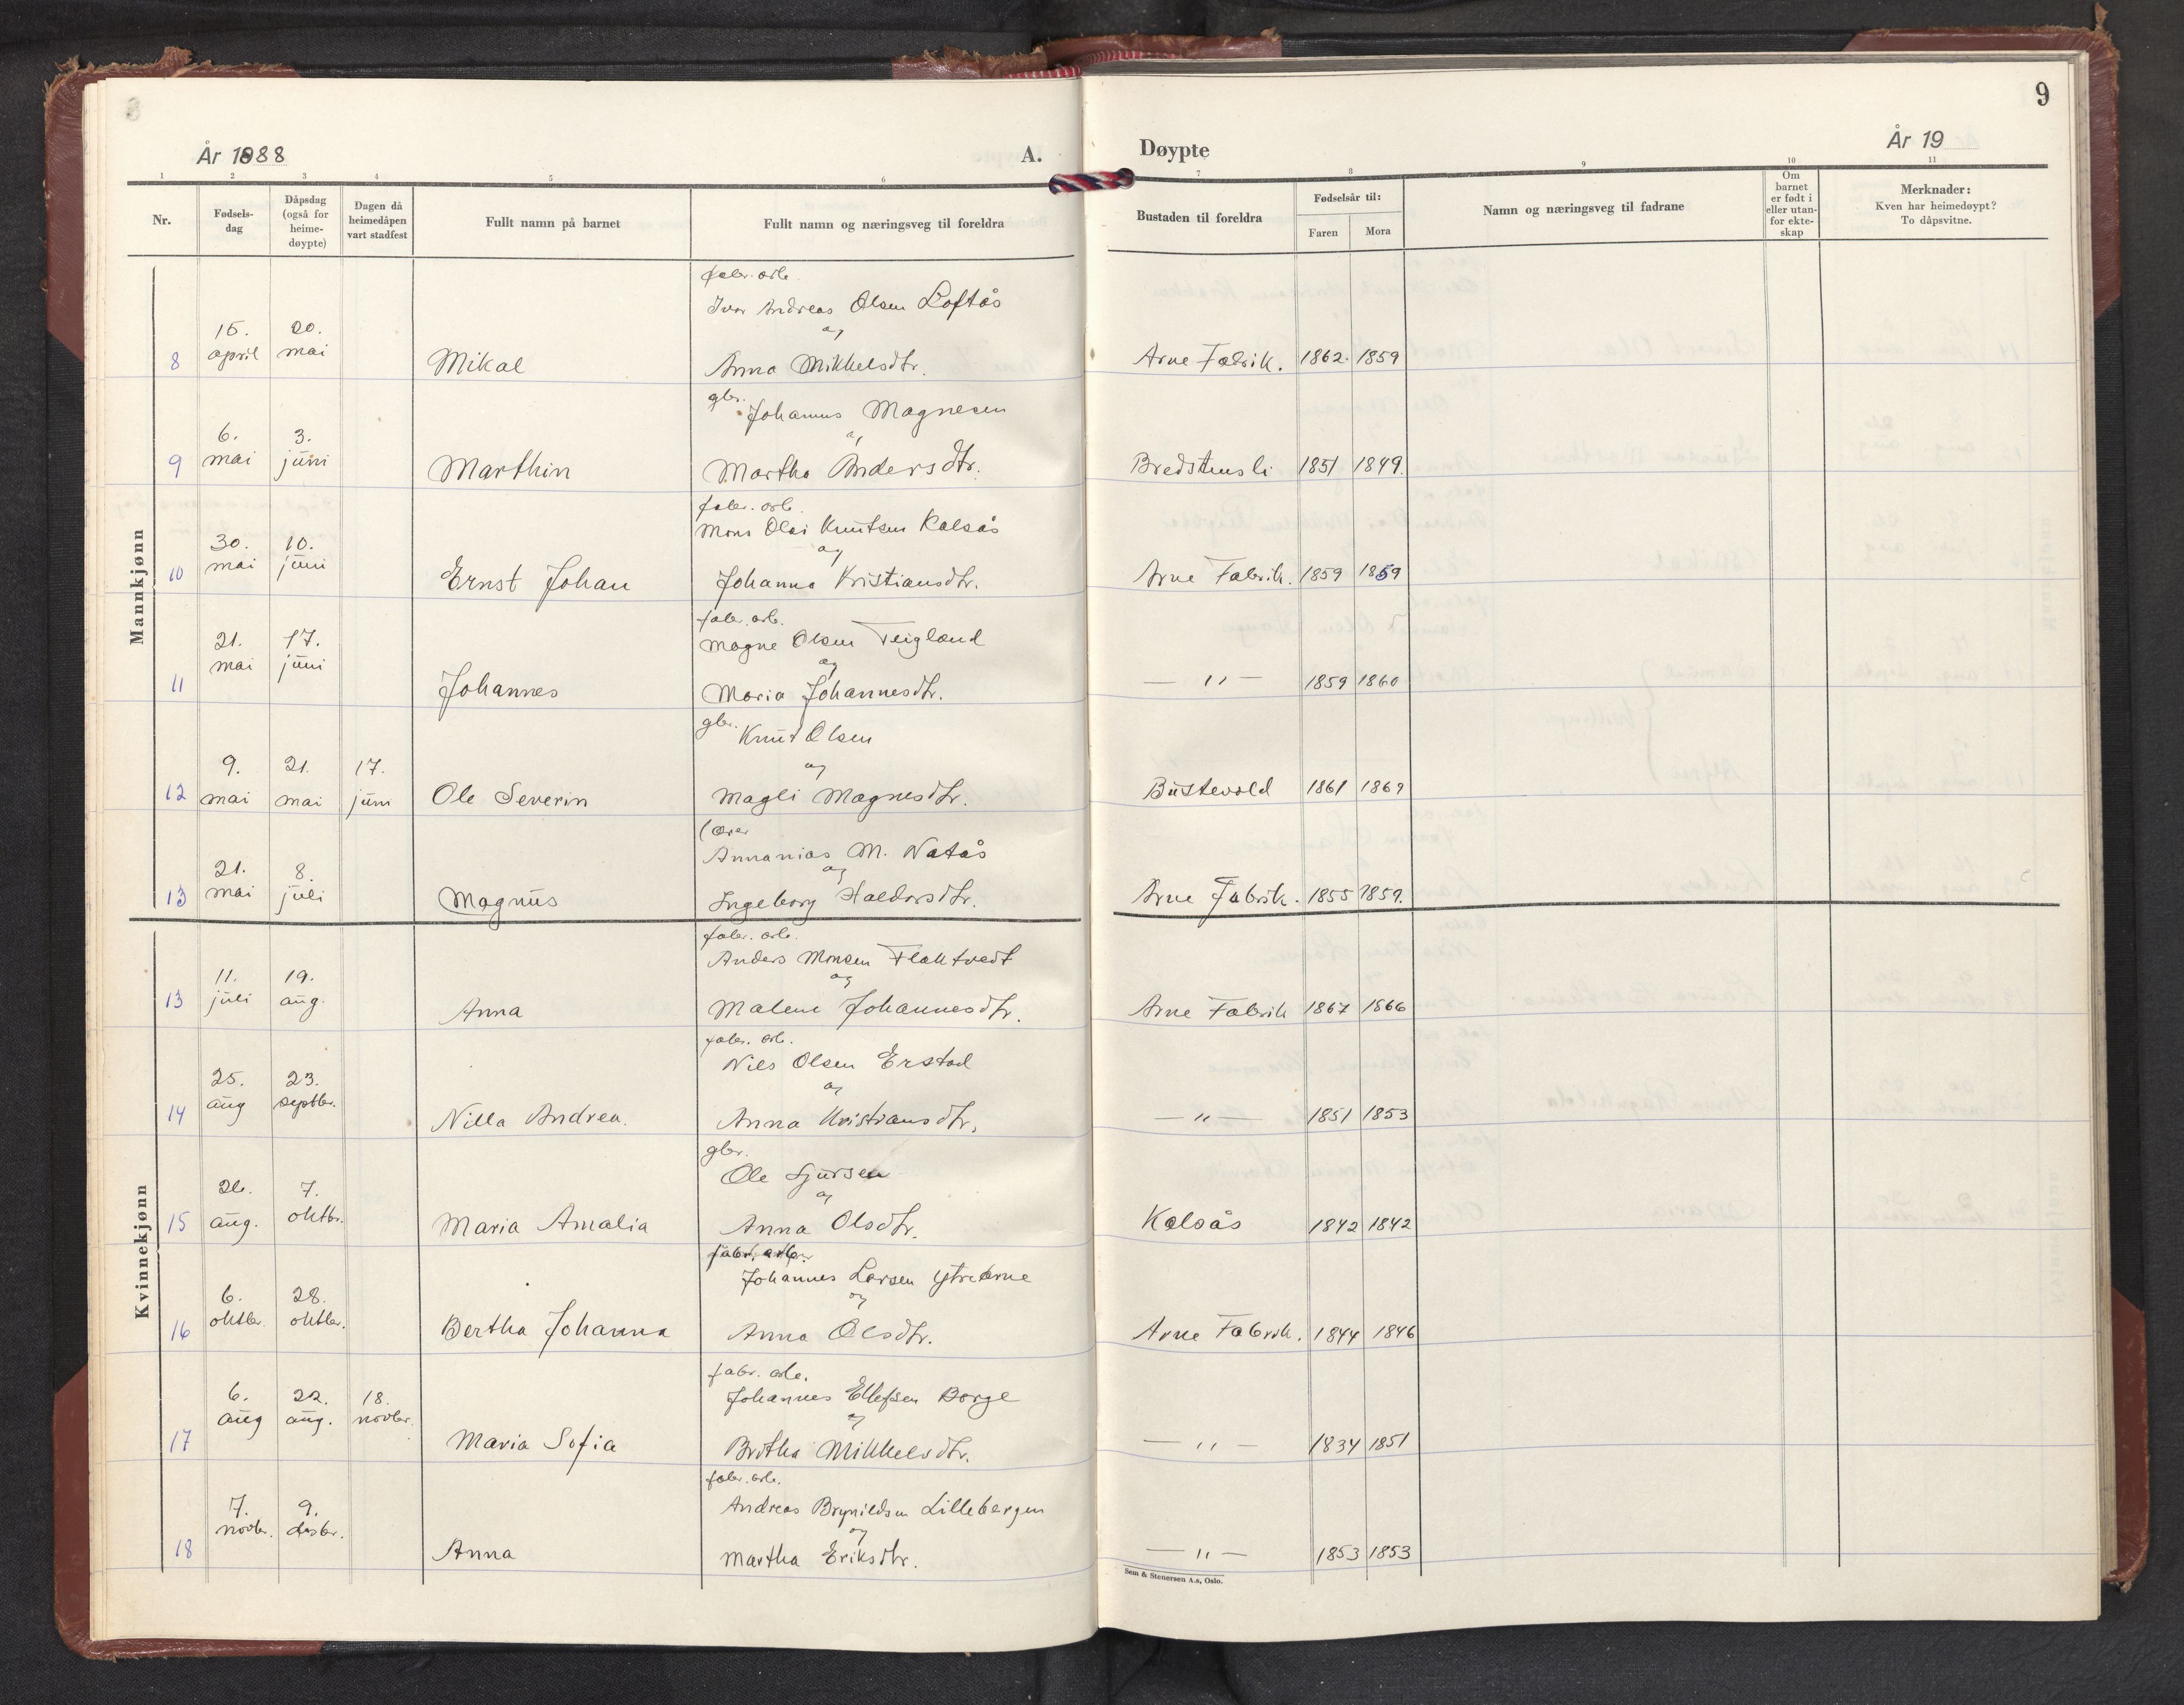 9
År 1888
A.
Døypte
År 19
1 2 3 4 5 6 7 8 9 10 11
Nr.
Fødsels-
dag
Dåpsdag
(også for
heime-
døypte)
Dagen då
heimedåpen
vart stadfest
Fullt namn på barnet
Fullt namn og næringsveg til foreldra
Bustaden til foreldra
Fødselsår til:
Faren Mora
Namn og næringsveg til fadrane
Om
barnet
er født i
eller utan-
for ekte-
skap
Merknader:
Kven har heimedøypt?
To dåpsvitne.
Mannkjønn
fabr. arb.
Ivar Andreas Olsen Loftås
15. 20. og
8 april mai Mikal Anna Mikkelsdtr. Arne Fabrik. 1862. 1859
gbr. Johannes Magnesen
6. 3. og
9 mai juni Marthin Martha Andersdtr. Bredstensli 1851 1849.
fabr. arb.
Mons Olai Knutsen Kalsås
30. 10. og
10 mai juni Ernst Johan Johanna Kristiansdtr. Arne Fabrik. 1859 1859
fabr. arb.
21. 17. Magne Olsen Teigland
mai juni og
11 Johannes Maria Johannesdtr. — " — 1859 1860
gbr. Knut Olsen
9. 21. 17. og
12 mai mai juni Ole Severin Magli Magnesdtr. Bustevold 1861 1869
lærer
Annanias M. Natås
21. 8. og
13 mai juli Magnus Ingeborg Haldorsdtr. Arne Fabrik. 1855 1859.
Kvinnekjønn
fabr. arb.
Anders Monsen Flaktvedt
11. 19. og
13 juli aug. Anna Malene Johannesdtr. Arne Fabrik 1867 1866
fabr. arb.
Nils Olsen Erstad
25. 23. og
14 aug septbr. Nilla Andrea. Anna Kristiansdtr. — " — 1851 1853
gbr.
Ole Sjursen
26. 7. og
15 aug. oktbr. Maria Amalia Anna Olsdtr. Kalsås 1842 1842
fabr. arb.
Johannes Larsen Ytre Arne
6. 28. og
16 oktbr. oktbr. Bertha Johanna Anna Olsdtr. Arne Fabrik. 1844 1846
fabr. arb.
Johannes Ellefsen Borge
6. 22. 18. og
aug aug. novbr.
17 Maria Sofia Britha Mikkelsdtr. — " — 1834 1851
fabr. arb.
Andreas Brynildsen Lillebergen
7. 9. og
novbr. desbr.
18 Anna Martha Eriksdtr. — " — 1853 1853
Sem & Stenersen A.s, Oslo.